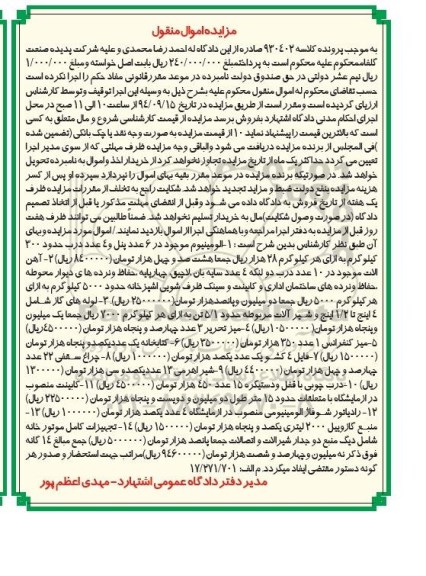 مزایده اموال منقول
به موجب پرونده کلاسه ۹۳۰۴۰۲ صادره از این دادگاه له احمد رضا محمدی و علیه شرکت پدیده صنعت
گلفام محکوم علیه محکوم است به پرداخت مبلغ ۲۴۰/۰۰۰/۰۰۰ ریال بابت اصل خواسته و مبلغ ۱/۰۰۰/۰۰۰
ریال نیم عشر دولتی در حق صندوق دولت نامبرده در موعد مقرر قانونی مفاد حکم را اجرا نکرده است
حسب تقاضای محکوم له اموال منقول محکوم علیه بشرح ذیل به وسیله این اجرا توقیف و توسط کارشناس
ارزیابی گردیده است و مقرر است از طریق مزایده در تاریخ ۹۴/۰۹/۱۵ از ساعت ۱۰ الی ۱۱ صبح در محل
اجرای احکام مدنی دادگاه اشتهارد بفروش برسد مزایده از قیمت کارشناسی شروع و مال متعلق به کسی
است که بالاترین قیمت را پیشنهاد نماید ۱۰ از قیمت مزایده به صورت وجه نقد یا چک بانکی (تضمین شده
)فی المجلس از برنده مزایده دریافت می شود والباقی وجه مزایده ظرف مهلتی که از سوی مدیر اجرا
تعیین می گردد حداکثر یک ماه از تاریخ مزایده تجاوز نخواهد کرد از خریدار اخذ و اموال به نامبرده تحویل
خواهد شد. در صورتیکه برنده مزایده در موعد مقرر بقیه بهای اموال را نپردازد سپرده او پس از کسر
هزینه مزایده بنفع دولت ضبط و مزاید تجدید خواهد شد. شکایت راجع به تخلف از مقررات مزایده ظرف
یک هفته از تاریخ فروش به دادگاه داده می شود و قبل از انقضای مهلت مذکور یا قبل از اتخاذ تصمیم
دادگاه (در صورت وصول شکایت)مال به خریدار تسلیم نخواهد شد. ضمنا طالبین می توانند ظرف هفت
روز قبل از مزایده به دفتر اجرا مراجعه و با هماهنگی اجرا از اموال بازدید نمایند / اموال مورد مزایده و بهای
آن طبق نظر کارشناس بدین شرح است : ۱-آلومینیوم موجود در ۶ عدد پنل و ۴ عدد درب حدود ۳۰۰
کیلوگرم به ازای هر کیلوگرم ۲۸ هزار ریال جمعا هشتصد و چهل هزار تومان (۸۴۰۰۰۰۰ ریال) ۲- آهن
آلات موجود در ۱۰ عدد درب دو لنگه ۴ عدد سایه بان لاچیق چهارپایه حفاظ و نرده ها ی دیوار محوطه
،حفاظ و نرده های ساختمان اداری و کابینت و سینک ظرف شویی آشپزخانه حدود ۵۰۰۰ کیلو گرم به ازای
هر کیلوگرم ۵۰۰۰ ریال جمعا دو میلیون و پانصد هزار تومان (۲۵۰۰۰۰۰۰ ریال) ۳- لوله های گاز شامل
۴ اینچ تا ۱/۲ اینچ و شیر آلات مربوطه حدود ۱/۵ تن به ازای هر کیلوگرم ۷۰۰۰ ریال جمعا یک میلیون
وپنجاه هزار تومان (۱۰۵۰۰۰۰۰ ریال) ۴-میز تحریر ۳ عدد چهارصد و پنجاه هزار تومان (۴۵۰۰۰۰۰ریال)
۵-میز کنفرانس ۱ عدد ۳۵۰ هزار تومان(۳۵۰۰۰۰۰ ریال) ۶- کتابخانه یک عدد یکصد و پنجاه هزار تومان
(۱۵۰۰۰۰۰ ریال) ۷-فایل ۴ کشو یک عدد یکصد هزار تومان (۱۰۰۰۰۰۰ ریال) ۸- چراغ سقفی ۲۲ عدد
چهارصد و چهل هزار تومان (۴۴۰۰۰۰۰ ریال) ۹-شیر اهرمی ۱۳ عدد یکصدو سی هزار تومان (۱۳۰۰۰۰۰
ریال) ۱۰-درب چوبی با قفل و دستگیره ۱۵ عدد ۴۵۰ هزار تومان (۴۵۰۰۰۰۰ ریال) ۱۱-کابینت منصوب
در آزمایشگاه با متعلقات حدود ۱۵ متر طول دو میلیون و دویست و پنجاه هزار تومان (۲۲۵۰۰۰۰۰ ریال)
۱۲-رادیاتور شوفاژ آلومینیومی منصوب در آزمایشگاه ۴ عدد یکصد هزار تومان (۱۰۰۰۰۰۰ ریال) ۱۳-
منبع گازوییل ۲۰۰۰ لیتری یکصد و پنجاه هزار تومان (۱۵۰۰۰۰۰ ریال) ۱۴-تجهیزات کامل موتور خانه
شامل دیگ منبع دو جدار شیرالات و اتصالات جمعا پانصد هزار تومان (۵۰۰۰۰۰۰ ریال) جمع مبالغ ۱۴ گانه
فوق ذکر نه میلیون و چهارصد و شصت هزار تومان (۹۴۶۰۰۰۰۰ ریال)مراتب جهت استحضار و صدور هر
گونه دستور مقتضی ایفاد میگردد. م الف: ۱۷/۲۷۱/۷۰۱
مدیر دفتر دادگاه عمومی اشتهارد - مهدی اعظم پور